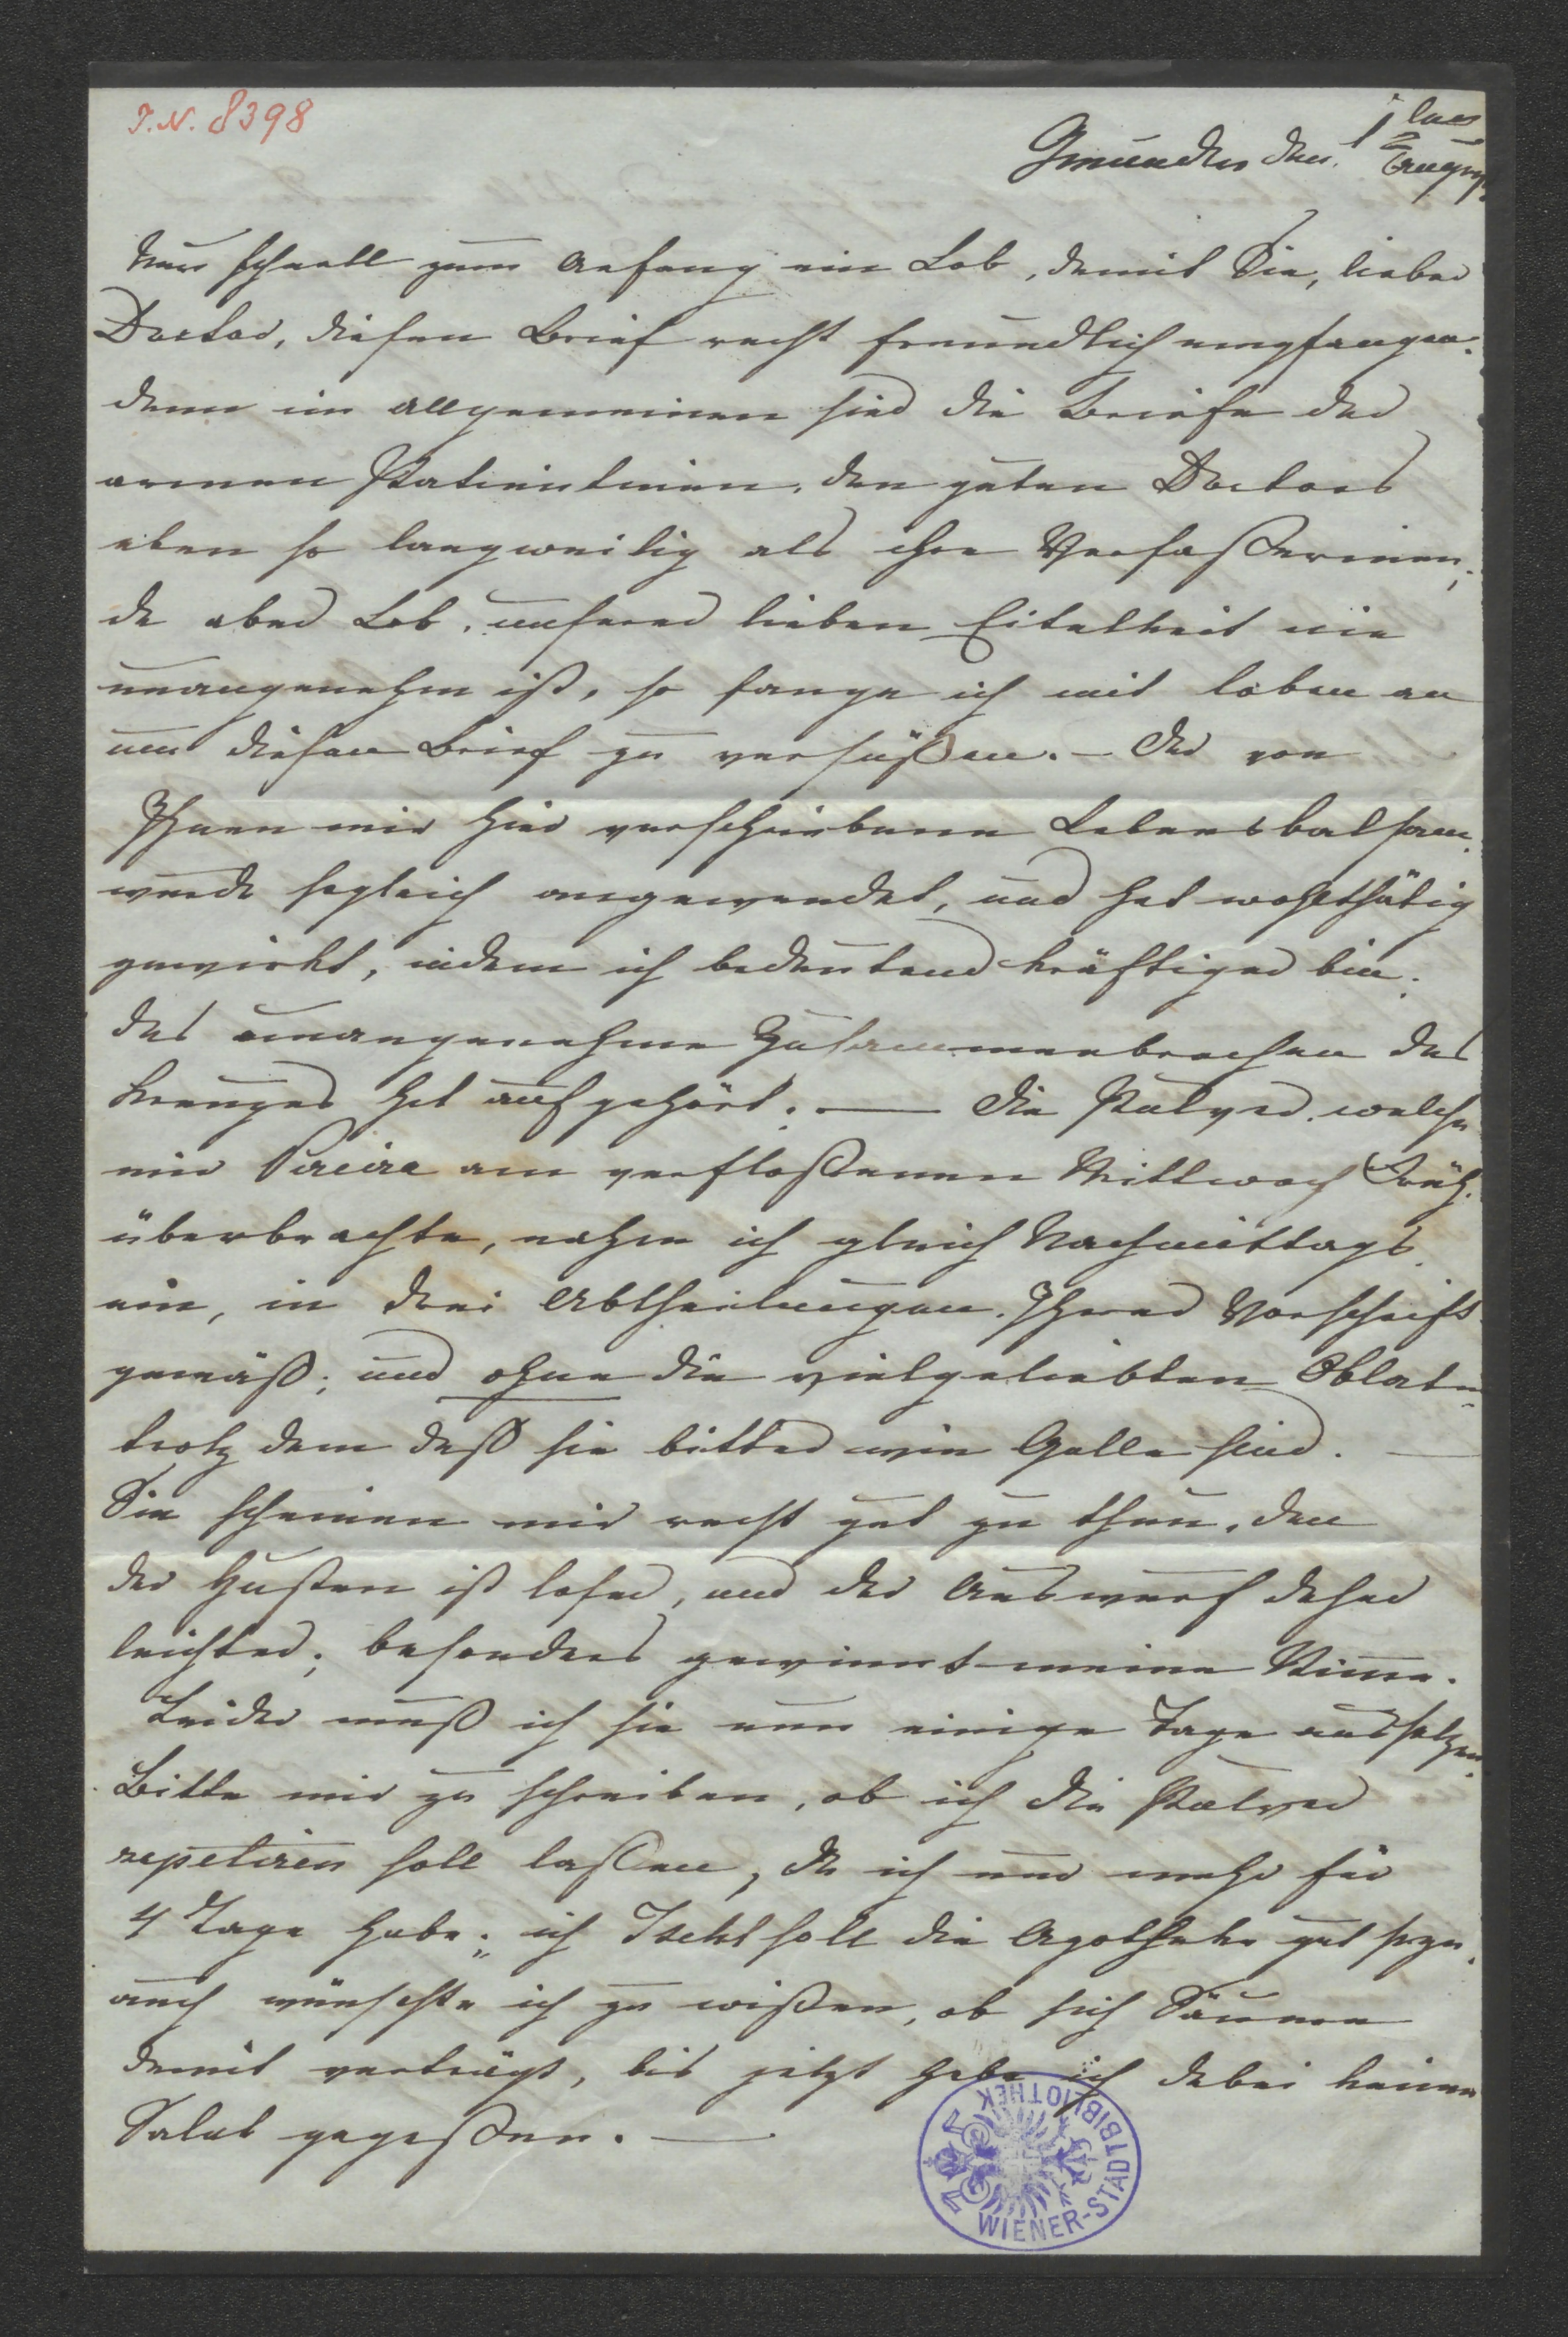 I.N. 8398
Gmunden den 1ten August
Nur schnell zum Anfang ein Lob, damit Sie, lieber
Doctor, diesen Brief recht freundlich empfangen.
denn im allgemeinen sind die Briefe der
armen Patientinen, den guten Doctors
eben so langweilig als ihre Verfaßerinen;
da aber Lob, unserer lieben Eitelkeit nie
unangenehm ist, so fange ich mit loben an
um diesen Brief zu versüßen. – Der von
Ihnen mir hier verschriebene Lebensbalsam,
wurde sogleich angewendet, und hat wohlthätig
gewirkt, indem ich bedeutend kräftiger bin.
das unangenehme Zusammenbrechen des
Kreuzes hat aufgehört. — Die Pulver, welche
mir Pereira am verfloßenen Mittwoch Früh.
überbrachte, nahm ich gleich Nachmittags
ein, in drei Abtheilungen, Ihrer Vorschrift
gemäß; und ohne die vielgeliebten Oblaten
trotz dem daß sie bitter wie Galle sind. —
Sie scheinen mir recht gut zu thun, den
der Husten ist loser, und der Auswurf daher
leichter; besonders gewinnt meine Stimme.
Leider muß ich sie nun einige Tage aussetzen.
Bitte mir zu schreiben, ob ich die Pulver
repetiren soll laßen, da ich nur mehr für
4 Tage habe; in Ischl soll die Apotheke gut seyn.
auch wünschte ich zu wißen, ob sich Säuren
damit verträgt, bis jetzt habe ich dabei keinen
Salat gegeßen. —
WIENER-STADTBIBLIOTHEK